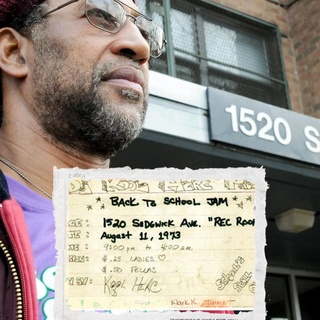 1520 S
DJ KOOL HERC
BACK TO SCHOOL JAM
1520 SEDGWICK AVE. "REC ROO
August 11, 1973
9:00 pm to 4:00 am
$.25 LADIES ♡
$.50 FELLAS
Kool HERC
KlarkK.